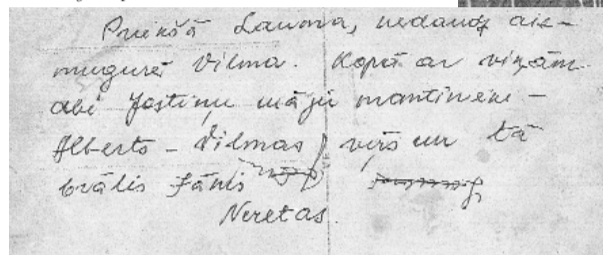 Priekšā Launora, nedaudz aiz-
mugurē Vilma. Kopā ar viņām
abi Jostiņu māju mantinieki -
Alberts - Vilmas vīrs un tā
brālis Jānis
Neretas.